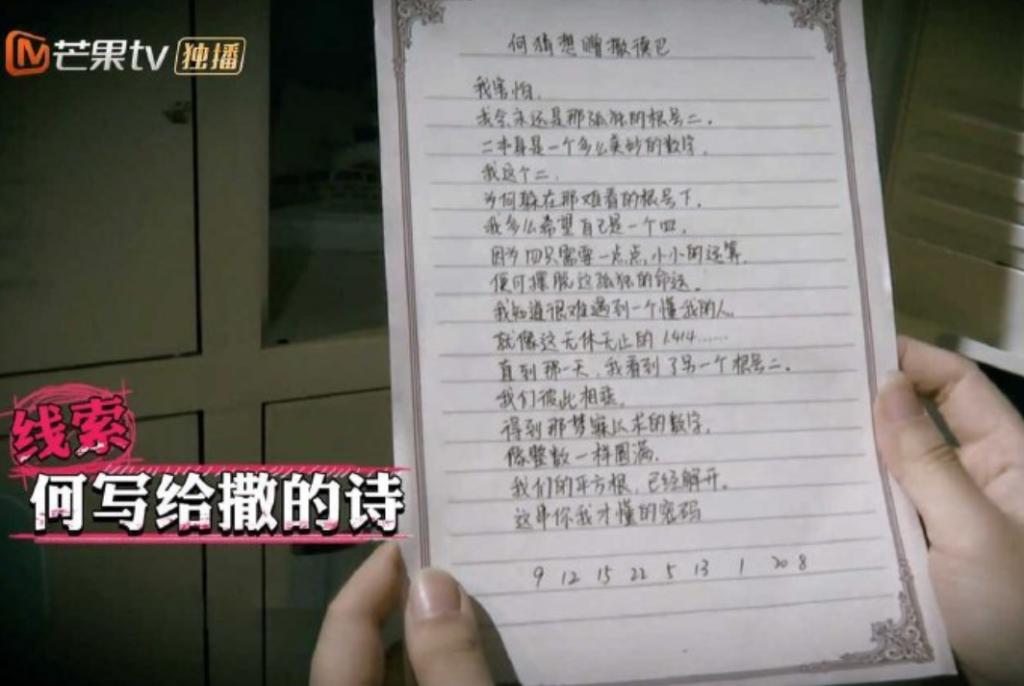 芒果tv 独播
何猜想赠撒德巴
我害怕,
我会永远是那孤独的根号二。
二本身是一个多么美妙的数字,
我这个二,
为何躲在那难看的根号下,
我多么希望自己是一个四,
因为四只需要一点点小小的运算,
便可摆脱这孤独的命运。
我知道很难遇到一个懂我的人,
就像这无休无止的 1.414……
直到那一天,我看到了另一个根号二。
我们彼此相乘,
得到那梦寐以求的数字,
像整数一样圆满,
我们的平方根,已经解开。
这是你我才懂的密码
9 12 15 22 5 13 1 20 8
线索
何写给撒的诗